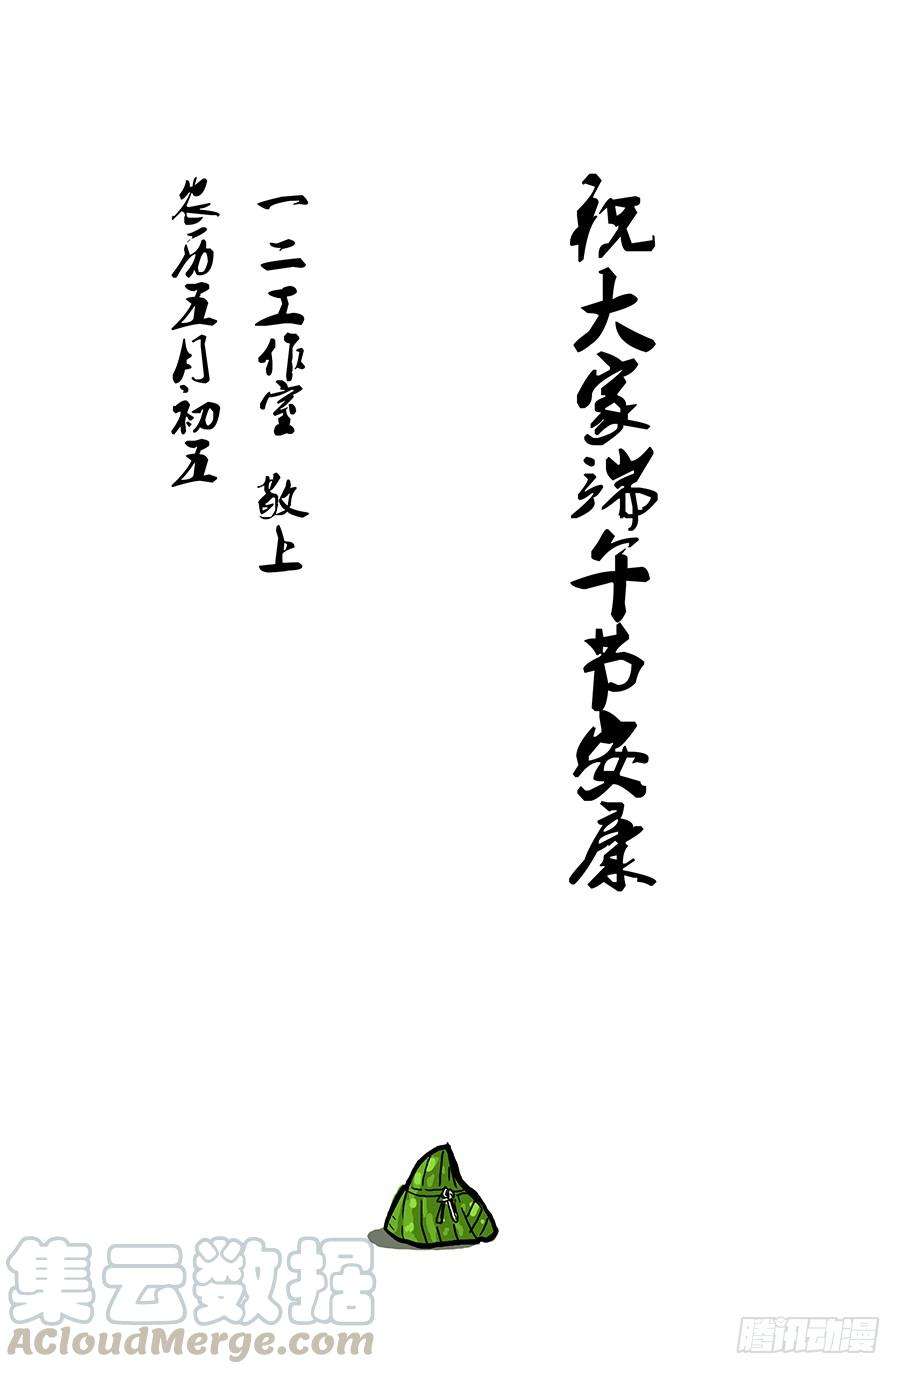 祝大家端午节安康
一二工作室 敬上
农历五月初五
集云数据
ACloudMerge.com
腾讯动漫